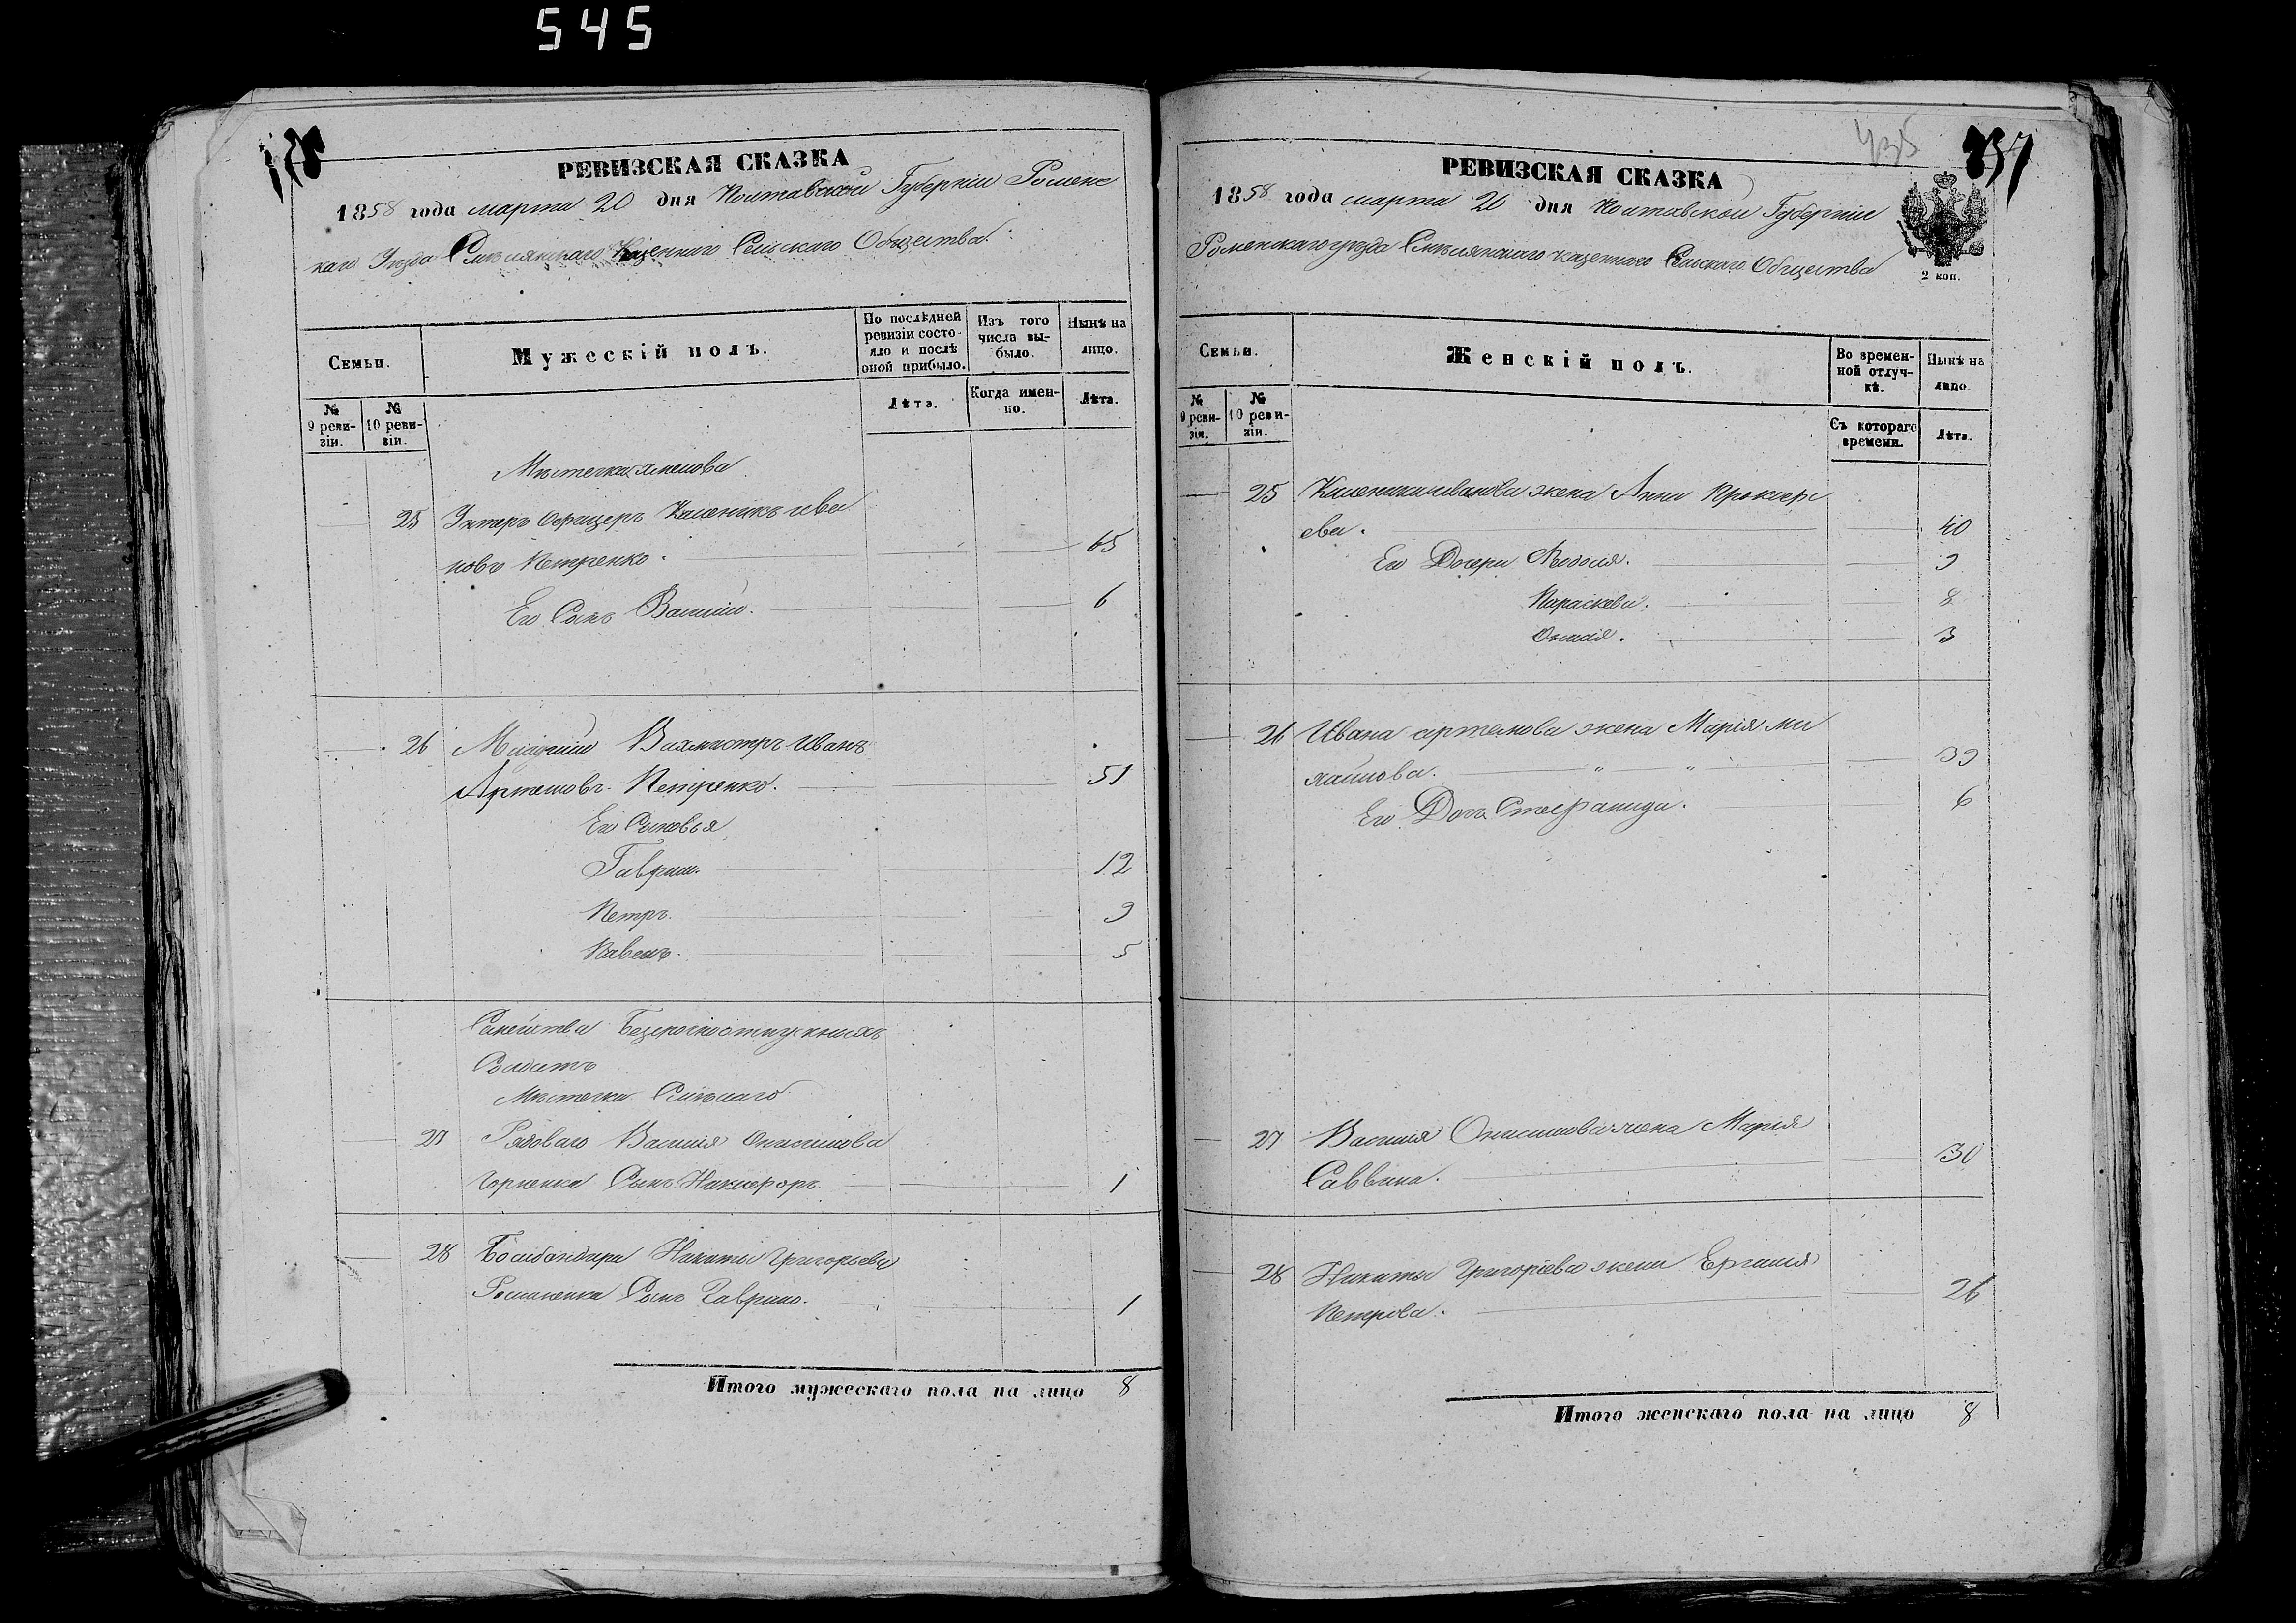 545
РЕВИЗСКАЯ СКАЗКА
1858 года марта 20 дня Полтавской Губерніи Роменс
каго Уезда Смѣлянскаго Казеннаго Сельскаго Общества.
Семьи.
Мужескій полъ.
По послѣдней ревизіи состояло и послѣ оной прибыло.
Изъ того числа выбыло.
Нынѣ на лицо.
№ 9 ревизіи.
№ 10 ревизіи.
Лѣта.
Когда именно.
Лѣта.
Мѣстечка Хмелова
25 Унтеръ Офицеръ Каленикъ Ива
новъ Петренко. 65
Его Сынъ Василій. 6
26 Младшій Вахмистръ Иванъ
Артемовъ Петренко. 51
Его Сыновья
Гавріил. 12
Петръ. 9
Павелъ. 5
Семейства Безсрочноотпускныхъ
Солдатъ
Мѣстечка Смѣлаго
27 Рядоваго Василия Онисимова
Сынъ Никифоръ 1
28 Бомбандира Никиты Григорьева
Романенка Сынъ Гаврило. 1
Итого мужескаго пола на лицо 8
435
837
РЕВИЗСКАЯ СКАЗКА
1858 года марта 20 дня Полтавской Губерніи
Роменскаго уезда Смѣлянскаго казеннаго Сельскаго Общества
2 коп.
Семьи.
Женскій полъ.
Во временной отлучкѣ.
Нынѣ на лицо.
№ 9 ревизіи.
№ 10 ревизіи.
Съ котораго времени.
Лѣта.
25 Каленика Иванова жена Анна Прокофь
ева. 40
Его Дочери Феодосія. 9
Параскева. 8
3
26 Ивана Артемова жена Марія Ми
хайлова. 39
Его Дочь Стефанида. 6
27 Василия Онисимова жена Марія
Саввина. 30
28 Никиты Григоріева жена
Петрова. 26
Итого женскаго пола на лицо 8